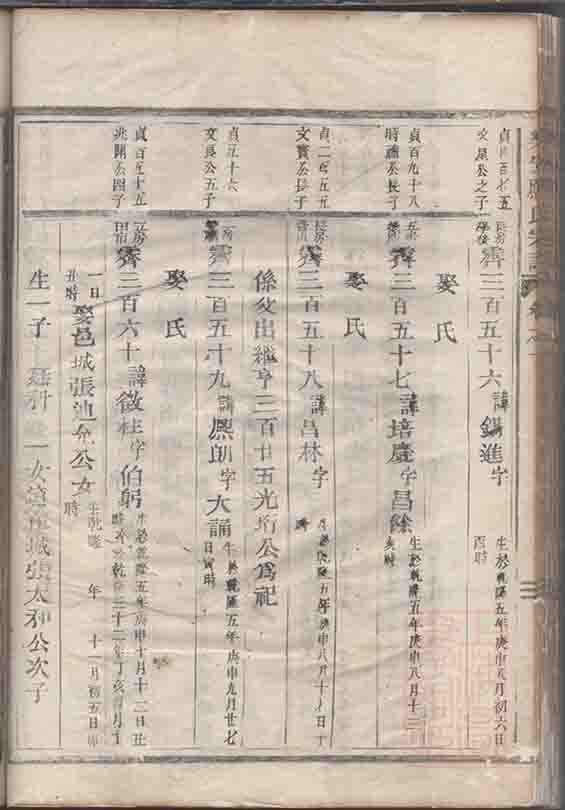 文星公之子
霽三百五十六諱錫進字
生於乾隆五年庚申八月初六日
酉時
娶氏
貞百九十八
公長子
霽三百五十七諱培慶字昌餘
生於乾隆五年庚申八月十二
娶氏
貞二百五五
文實公長子
長房
霽三百五十八諱昌林字
生於乾隆五年庚申八月十八日
係父出繼亨三百廿五光珩公為祀
貞五十六
文良公五子
霽三百五十九諱熈朗字大誦
生於乾隆五年庚申九月廿七
日寅時
娶氏
貞百五十五
兆開公四子
霽三百六十諱徵柱字伯躬
生於乾隆五年庚申十月十二日丑
時卒於乾隆三十二年丁亥月十
一日
丑時
娶邑城張迪允公女
生乾隆年十一月初五日卯
時
生一子廷利一女適邑城張太和公次子